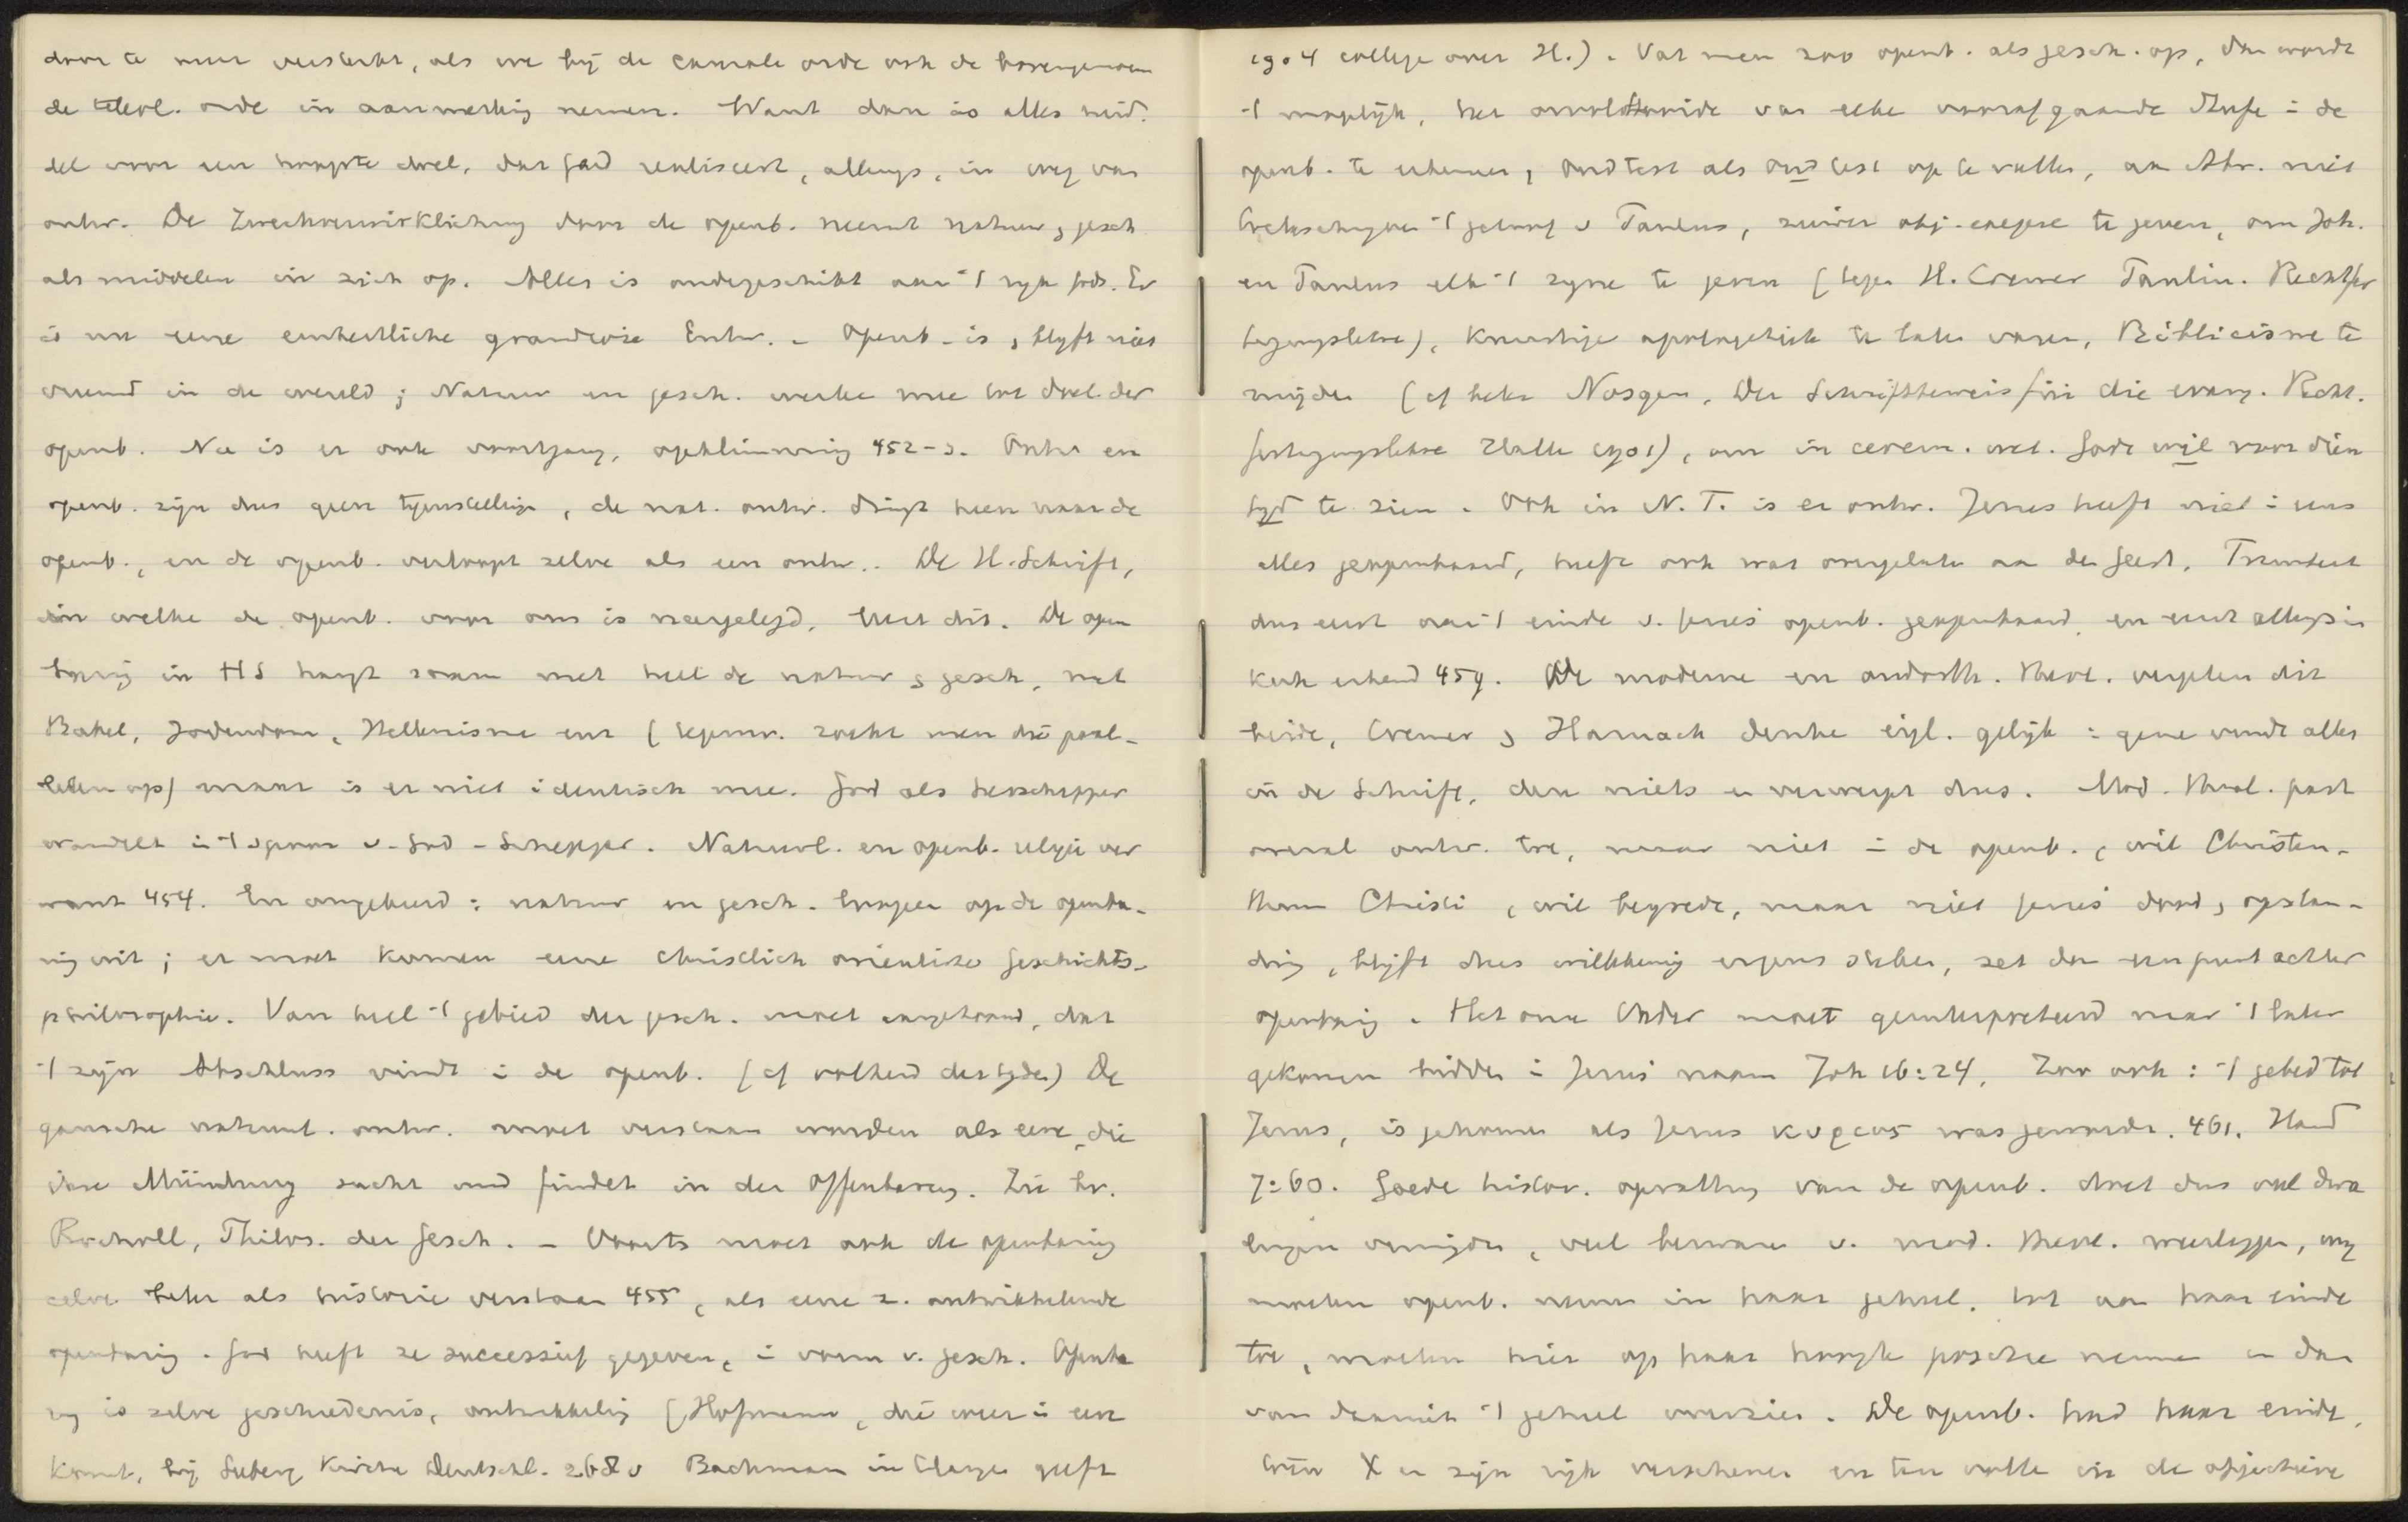 door te meer versterkt, als we bij de causale orde ook de bovengenoem
de teleol. orde in aanmerking nemen. Want dan is alles mid.
del voor een hoogste doel, dat God realiseert, allengs, in weg van
ontw. De Zweckverwirklichung door de openb. neemt natuur & gesch
als middelen in zich op. Alles is ondergeschikt aan 't ryk Gods. Er
is nu eine einheitliche grandiose Entw. - Openb. is, blyft niet
vreemd in de wereld; Natuur en gesch. werke mee tot doel der
openb. Nu is er ook voortgang, opklimming 452-3. Ontw en
openb. zijn dus geen tegenstelling, de nat. ontw. dringt heen naar de
openb., en de openb. verloopt zelve als een ontw.. De H. Schrift,
in welke de openb. voor ons is neergelegd, leert dit. De open
baring in HS hangt saam met heel de natuur & gesch, met
Babel, Jodendom, Hellenisme enz (tegenw. zoekt men die paral-
lellen op) maar is er niet identisch mee. God als herschepper
wandelt in 't spoor v. God - Schepper. Natuurl. en openb. religie ver
want 454. En omgekeerd: natuur en gesch. loopen op de openba-
ring uit; er moet komen eine christlich orientirte Geschichts-
philosophie. Van heel 't gebied der gesch. moet aangetoond, dat
't zijn Abschluss vindt in de openb. (cf volheid des tyds) De
gansche natuurl. ontw. moet verstaan worden als eene, die
ihre Mündung sucht und findet in der Offenbarung. Zie bv.
Rocholl, Philos. der Gesch. - Voorts moet ook de openbaring
zelve beter als historie verstaan 455, als eene z. ontwikkelende
openbaring. God heeft ze successief gegeven, in vorm v. gesch. Openba
ring is zelve geschiedenis, ontwikkeling (Hofmann, die weer in eere
komt, bij Seeberg Kirche Deutschl. 268 v Bachman in Clarges geeft
1904 college over H.). Vat men zoo openb. als gesch. op, dan wordt
't mogelijk, het onvoltooide van elke voorafgaande Stufe in de
openb. te erkennen, Oud test als Oud test op te vatten, aan Abr. niet
toeteschryven 't geloof v Paulus, zuiver obj. exegese te geven, om Joh.
en Paulus elk 't zyne te geven (tegen H. Cremer Paulin. Rechtfer
tigungslehre), Kunstige apologetiek te laten varen, Biblicisme te
mijden (cf beter Nösgen, Der Schriftbeweis für die evang. Recht.
fertigungslehre Halle 1901), om in cerem. wet. Gods wil voor dien
tyd te zien. Ook in N. T. is er ontw. Jezus heeft niet in eens
alles geopenbaard, heeft ook wat overgelaten aan den Geest, Triniteit
dus eerst aan 't einde v. Jezus' openb. geopenbaard, en eerst allengs in
kerk erkend 459. De moderne en ouderth. theol. vergeten dit
beide, Cremer & Harnack denke eigl. gelijk: gene vindt alles
in de Schrift, deze niets en verwerpt dus. Mod. theol. past
overal ontw. toe, maar niet in de openb., wil Christen-
thum Christi, wil bergrede, maar niet Jezus' dood, opstan-
ding, blijft dus willekeurig ergens steken, zet dan een punt achter
openbaring. Het onze Vader moet geinterpreteerd naar 't later
gekomen bidden in Jezus' naam Joh 16:24. Zoo ook: 't gebed tot
Jezus, is gekomen als Jezus κυριος was geworden. 461. Hand
7:60. Goede histor. opvatting van de openb. doet dus veel dwa
lingen vermijden, veel bezwaren v. mod. theol. weerleggen, wij
moeten openb. nemen in haar geheel, tot aan haar einde
toe, moeten hier op haar hoogste positie nemen en dan
van daaruit 't geheel overzien. De openb. had haar einde,
toen X en zijn rijk verschenen en ten volle in de objectieve